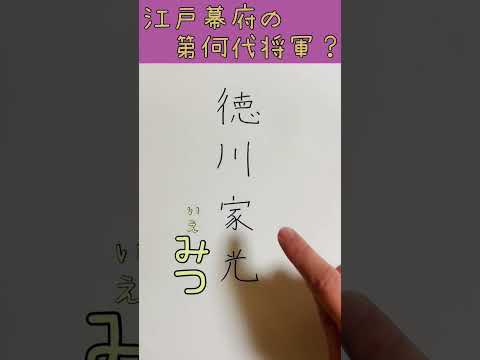 江戸幕府の
第何代将軍？
徳川家光
いえ
みつ
いえ
みつ